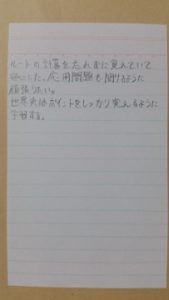 ルートの計算を忘れずに覚えていて
良かった。応用問題も解けるように
頑張りたい。
世界史はポイントをしっかり覚えるように
学習する。